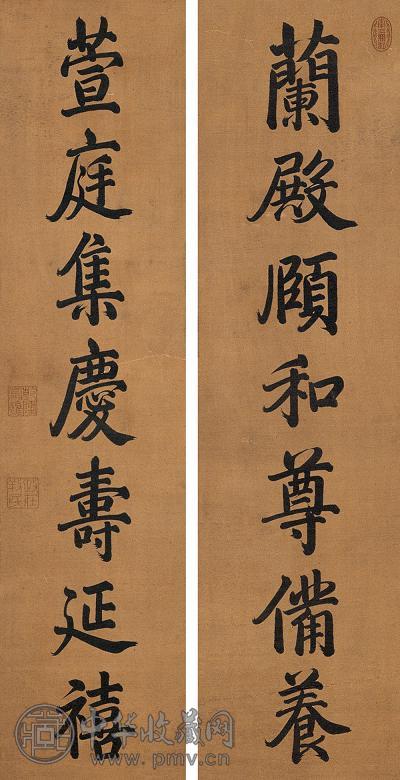 蘭殿頤和尊備養
萱庭集慶壽延禧
中华收藏网
www.pmv.cn